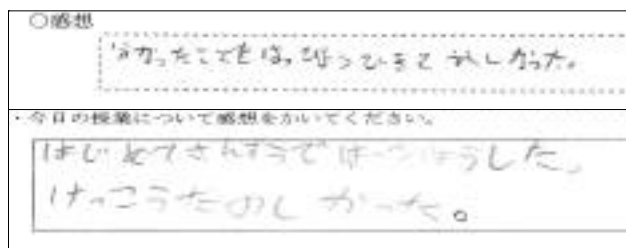 ○感想
分かったことをはっぴょうできてうれしかった。
・今日の授業について感想をかいてください。
はじめてさんすうではっぴょうした。
けっこうたのしかった。